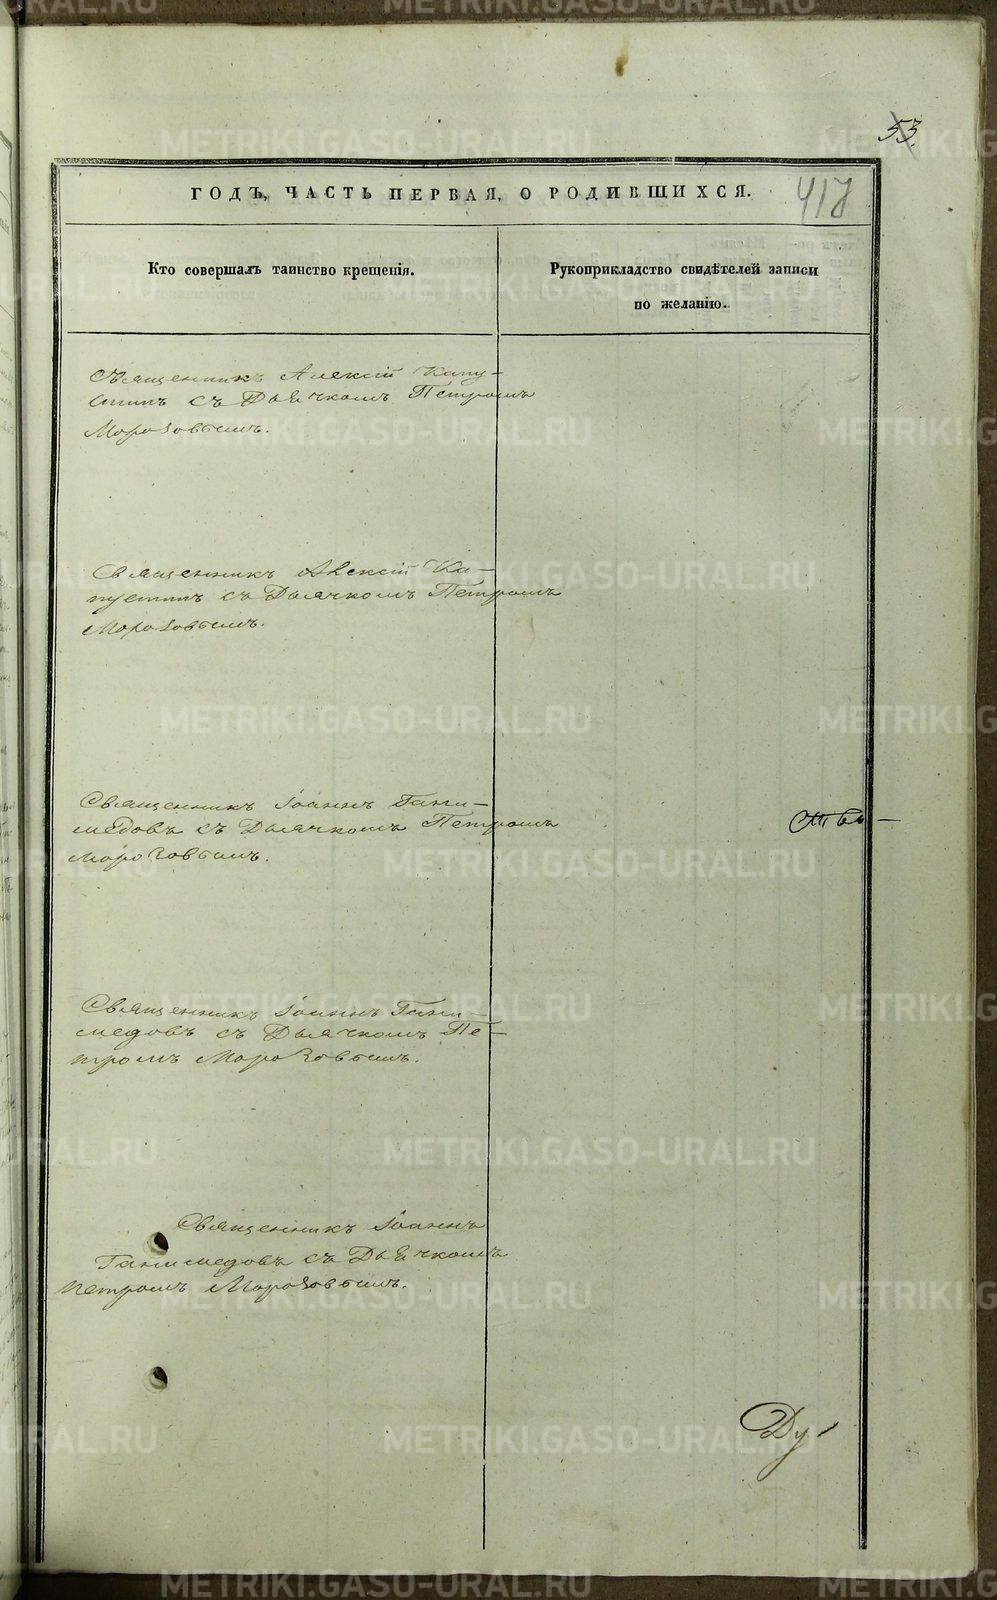 53.
417
ГОДЪ, ЧАСТЬ ПЕРВАЯ, О РОДИВШИХСЯ.
Кто совершалъ таинство крещенія.
Рукоприкладство свидѣтелей записи
по желанію.
Священникъ Алексій Капу-
стинъ съ Дьячкомъ Петромъ
Морозовымъ.
Священникъ Алексій Ка-
пустинъ съ Дьячкомъ Петромъ
Морозовымъ.
Священникъ Іоаннъ Гани-
медовъ съ Дьячкомъ Петромъ
Морозовымъ.
Священникъ Іоаннъ Гани-
медовъ съ Дьячкомъ Пе-
тромъ Морозовымъ.
Священникъ Іоаннъ
Ганимедовъ съ Дьячкомъ
Петромъ Морозовымъ.
Ду
METRIKI.GASO-URAL.RU